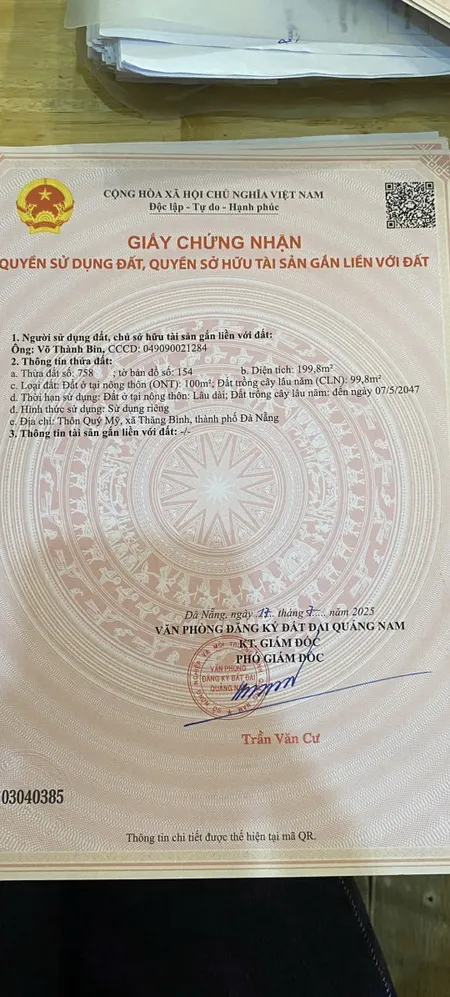 CỘNG HÒA XÃ HỘI CHỦ NGHĨA VIỆT NAM
Độc lập - Tự do - Hạnh phúc
GIẤY CHỨNG NHẬN
QUYỀN SỬ DỤNG ĐẤT, QUYỀN SỞ HỮU TÀI SẢN GẮN LIỀN VỚI ĐẤT
1. Người sử dụng đất, chủ sở hữu tài sản gắn liền với đất:
Ông: Võ Thành Bin, CCCD: 049090021284
2. Thông tin thửa đất:
a. Thửa đất số: 758 ; tờ bản đồ số: 154 b. Diện tích: 199,8m²
c. Loại đất: Đất ở tại nông thôn (ONT): 100m²; Đất trồng cây lâu năm (CLN): 99,8m²
d. Thời hạn sử dụng: Đất ở tại nông thôn: Lâu dài; Đất trồng cây lâu năm: đến ngày 07/5/2047
đ. Hình thức sử dụng: Sử dụng riêng
e. Địa chỉ: Thôn Quý Mỹ, xã Thăng Bình, thành phố Đà Nẵng
3. Thông tin tài sản gắn liền với đất: -/-
Đà Nẵng, ngày 17 tháng 7 năm 2025
VĂN PHÒNG ĐĂNG KÝ ĐẤT ĐAI QUẢNG NAM
KT. GIÁM ĐỐC
PHÓ GIÁM ĐỐC
VĂN PHÒNG
ĐĂNG KÝ ĐẤT ĐAI
QUẢNG NAM
Trần Văn Cư
03040385
Thông tin chi tiết được thể hiện tại mã QR.